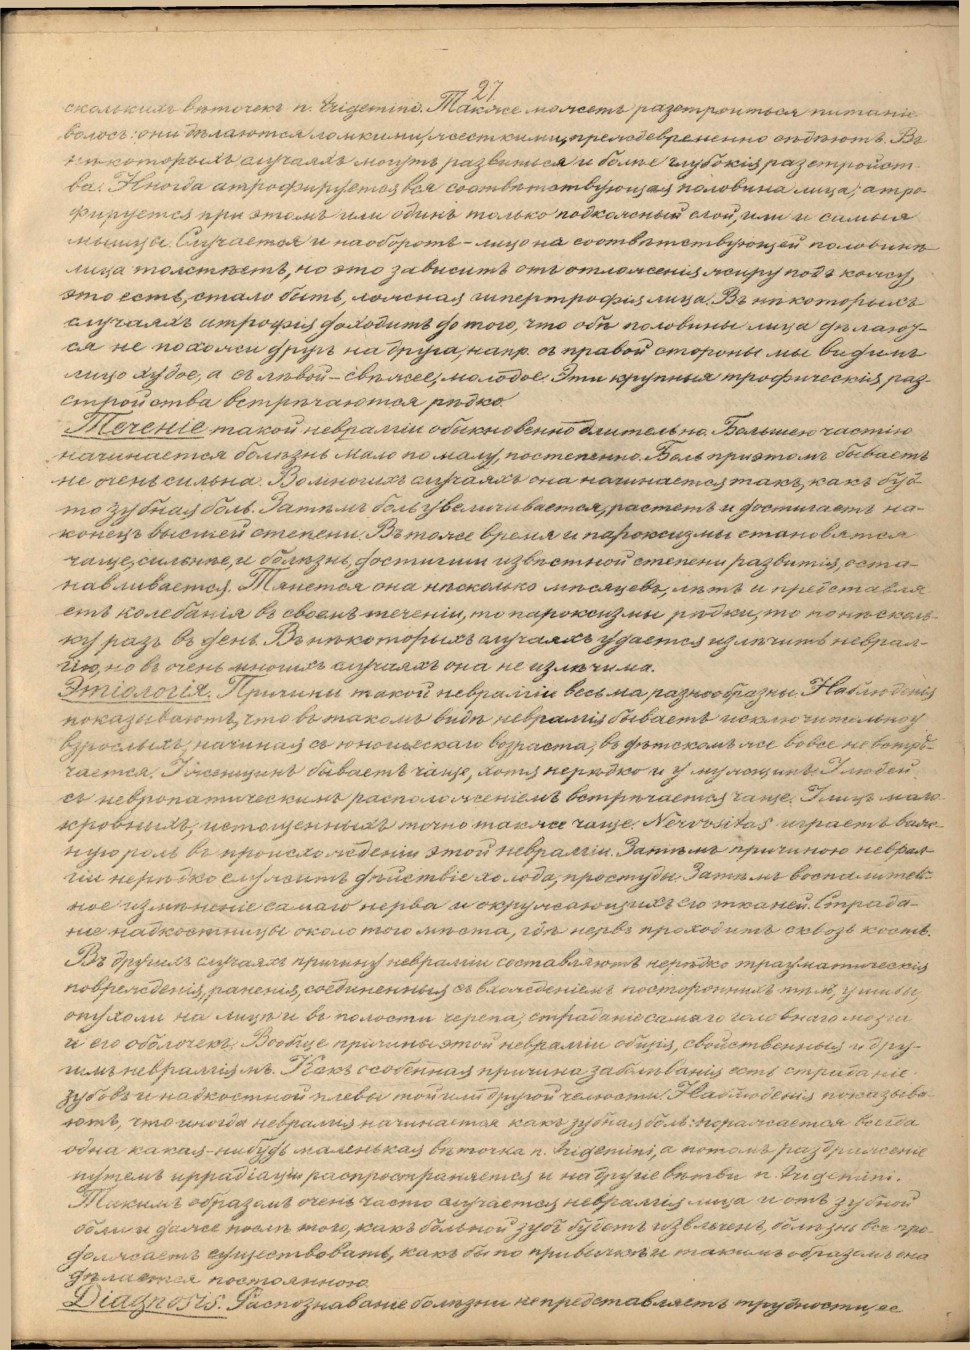 27.
скольких вѣточекъ n. trigemino. Также можетъ разстроиться питаніе
волосъ: они дѣлаются ломкими, жесткими, преждевременно сѣдѣютъ. Въ
нѣкоторыхъ случаяхъ могутъ развиться и болѣе глубокія разстройст-
ва. Иногда атрофируется вся соотвѣтствующая половина лица; атро-
фируется при этомъ или одинъ только подкожный слой, или и самыя
мышцы. Случается и наоборотъ – лицо на соотвѣтствующей половинѣ
лица толстѣетъ, но это зависитъ отъ отложенія жиру подъ кожу,
это есть, стало быть, ложная гипертрофія лица. Въ нѣкоторыхъ
случаяхъ атрофія доходитъ до того, что обѣ половины лица дѣлают-
ся не похожи другъ на друга, напр. съ правой стороны мы видимъ
лицо худое, а съ лѣвой – свѣжее, молодое. Эти крупныя трофическія раз-
стройства встрѣчаются рѣдко.
Теченіе такой невралгіи обыкновенно длительно. Большею частію
начинается болѣзнь мало по малу, постепенно. Боль при этомъ бываетъ
не очень сильна. Во многихъ случаяхъ она начинается такъ, какъ буд-
то зубная боль. Затѣмъ боль увеличивается, растетъ и достигаетъ на-
конецъ высшей степени. Въ тоже время и пароксизмы становятся
чаще, сильнѣе, и болѣзнь, достигши извѣстной степени развитія, оста-
навливается. Тянется она нѣсколько мѣсяцевъ, лѣтъ и представля
етъ колебанія въ своемъ теченіи, то пароксизмы рѣдки, то по нѣсколь-
ку разъ въ день. Въ нѣкоторыхъ случаяхъ удается излѣчить неврал-
гію, но въ очень многихъ случаяхъ она не излѣчима.
Этіологія. Причины такой невралгіи весьма разнообразны. Наблюденія
показываютъ, что въ такомъ видѣ невралгія бываетъ исключительно у
взрослыхъ, начиная съ юношескаго возраста, въ дѣтскомъ же вовсе не встрѣ-
чается. У женщинъ бываетъ чаще, хотя нерѣдко и у мужчинъ. У людей
съ невропатическимъ расположеніемъ встрѣчается чаще. У лицъ мало-
кровныхъ, истощенныхъ точно также чаще. Nervositas играетъ важ-
ную роль въ происхожденіи этой невралгіи. Затѣмъ причиною неврал-
гіи нерѣдко служитъ дѣйствіе холода, простуды. Затѣмъ воспалитель-
ное измѣненіе самаго нерва и окружающихъ его тканей. Страда-
ніе надкостницы около того мѣста, гдѣ нервъ проходитъ сквозь кость.
Въ другихъ случаяхъ причину невралгіи составляютъ нерѣдко травматическія
поврежденія, раненія, соединенныя съ вхожденіемъ постороннихъ тѣлъ, ушибы,
опухоли на лицѣ и въ полости черепа, страданіе самаго головнаго мозга
и его оболочекъ. Вообще причины этой невралгіи общія, свойственныя и дру-
гимъ невралгіямъ. Какъ особенная причина заболѣванія есть страданіе
зубовъ и надкостной плевы той или другой челюсти. Наблюденія показыва-
ютъ, что иногда невралгія начинается какъ зубная боль: поражается всегда
одна какая-нибудь маленькая вѣточка n. trigemini, а потомъ раздраженіе
путемъ иррадіаціи распространяется и на другіе вѣтви n. trigemini.
Такимъ образомъ очень часто случается невралгія лица и отъ зубной
боли и даже послѣ того, какъ больной зубъ будетъ извлеченъ, болѣзнь все про-
должаетъ существовать, какъ бы по привычкѣ и такимъ образомъ она
дѣлается постоянною.
Diagnosis. Распознаваніе болѣзни не представляетъ трудности, ее